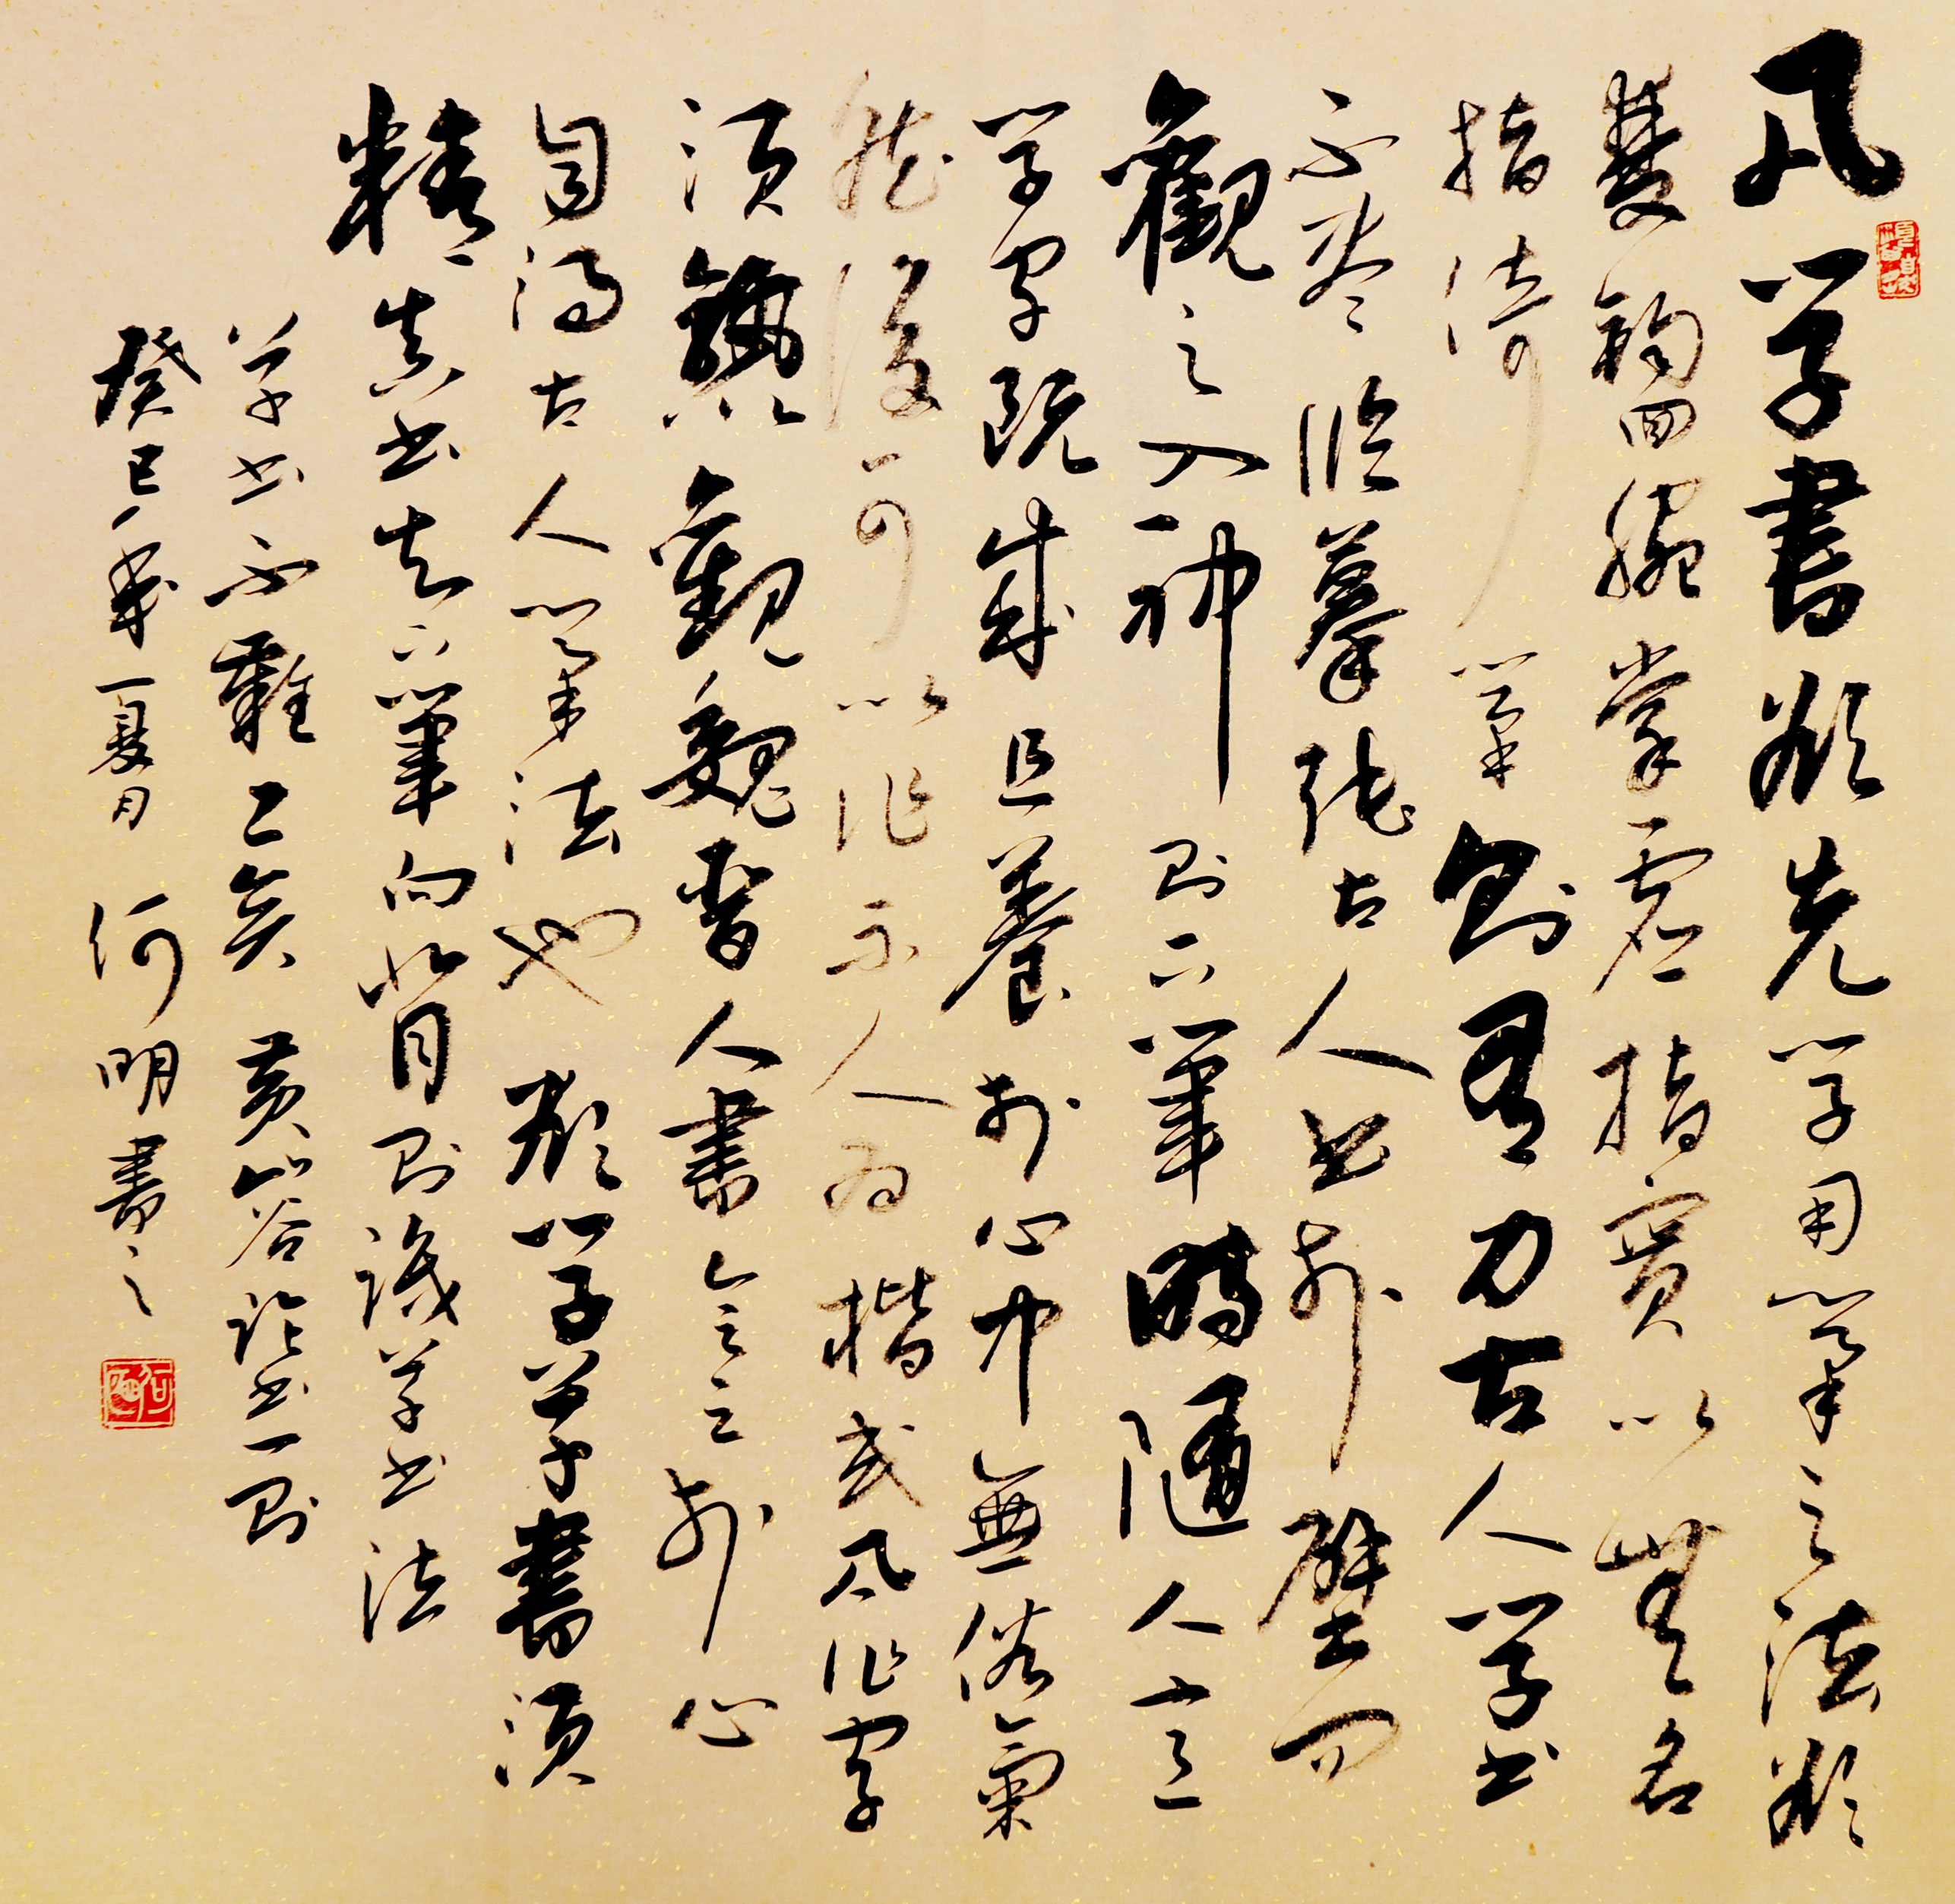 凡學書欲先學用筆之法欲
雙鉤回腕掌虛指實以無名
指倚筆則有力古人學書
不盡臨摹張古人書於壁間
觀之入神則下筆時隨人意
學字既成且養於心中無俗氣
然後可以作示人為楷式凡作字
須熟觀魏晉人書會之於心
自得古人筆法也欲學草書須
精真書知下筆向背則識草書法
草書不難工矣 黃山谷論書一則
癸巳年夏月 何明書之